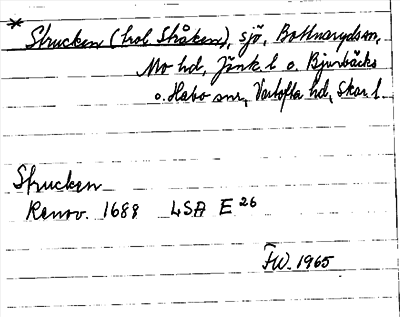 * Strucken (trol Stråken), sjö, Bottnarydssn,
Mo hd, Jönk l o. Bjurbäcks
o. Habo snr, Vartofta hd, Skar. l.
Strucken
Renov. 1688 LSA E 26
FW. 1965